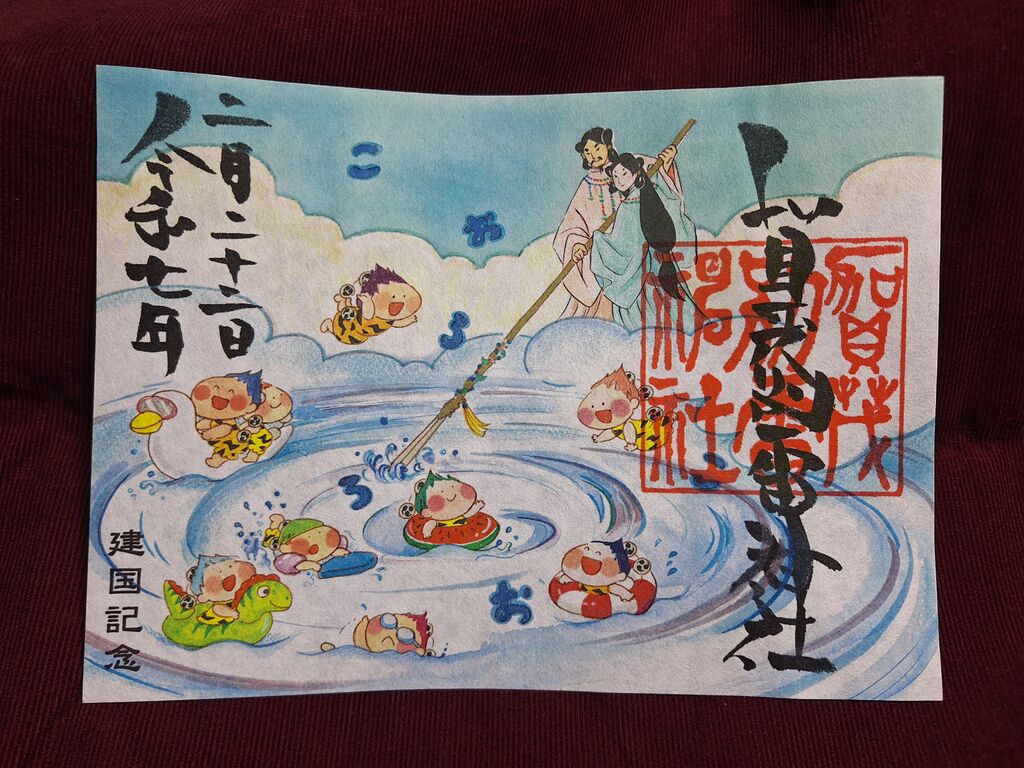 賀茂別雷神社
賀茂
別雷
神社
こ
お
ろ
ろ
お
令和七年
二月二十二日
建国記念